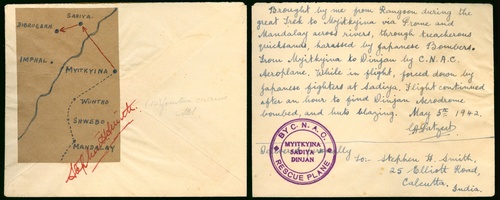 SADIYA.
DIBRUGARH
IMPHAL
MYITKYINA
WUNTHO
SHWEBO
MANDALAY
Stephen H Smith
Brought by me from Rangoon during the
great Trek to Myitkyina via Prome and
Mandalay across rivers, through treacherous
quicksands, harassed by Japanese Bombers.
From Myitkyina to Dinjan by C.N.A.C.
Aeroplane. While in flight, forced down by
Japanese fighters at Sadiya. Flight continued
after an hour to find Dinjan Aerodrome
bombed, and huts blazing. May 5th 1942.
BY C.N.A.C.
MYITKYINA
SADIYA
DINJAN
RESCUE PLANE
Delivered personally
to:- Stephen H. Smith,
25 Elliott Road,
Calcutta,
India.